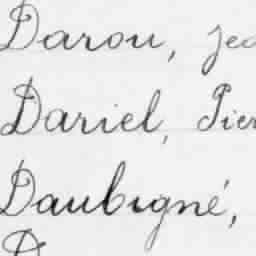 Darou, jea
Dariel, Pier
Daubigné,
D